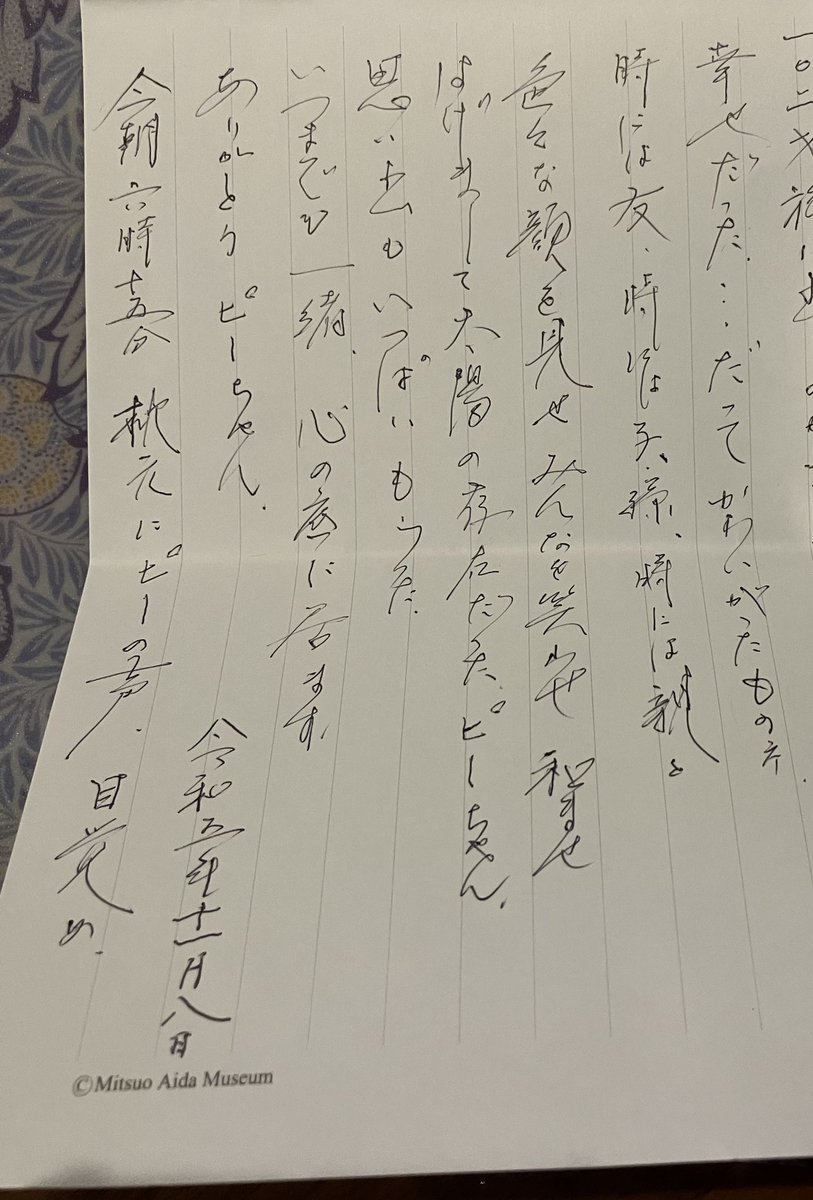 一〇二才旅に出
幸せだった…だってかわいがったもの
時には友、時には子、孫、時には親と
色々な顔を見せみんなを笑わせ 和ませ
はげまして太陽の存在だった。ピーちゃん。
思い出もいっぱいもらった。
いつまでも一緒、心の底に居ます。
ありがとう ピーちゃん。
令和五年十一月八日
今朝六時十五分 枕元にピーの声、目覚め、
©Mitsuo Aida Museum